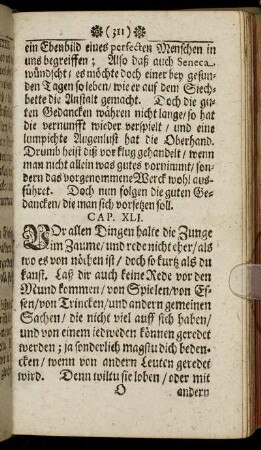 (311)
ein Ebenbild eines perfecten Menschen in
uns begreiffen; Also daß auch Seneca
wündscht / es möchte doch einer bey gesun-
den Tagen so leben / wie er auf dem Siech-
bette die Anstalt gemacht. Doch die gu-
ten Gedancken währen nicht lange / so hat
die vernunfft wieder verspielt / und eine
lumpichte Augenlust hat die Oberhand.
Drumb heist diß vor klug gehandelt / wenn
man nicht allein was gutes vornimmt / son-
dern das vorgenommene Werck wohl aus-
führet. Doch nun folgen die guten Ge-
dancken / die man sich vorsetzen soll.
CAP. XLI.
VOr allen Dingen halte die Zunge
im Zaume / und rede nicht eher / als
wo es von nöthen ist / doch so kurtz als du
kanst. Laß dir auch keine Rede vor den
Mund kommen / von Spielen / von Es-
sen / von Trincken / und andern gemeinen
Sachen / die nicht viel auff sich haben /
und von einem iedweden können geredet
werden; ja sonderlich magstu dich beden-
cken / wenn von andern Leuten geredet
wird. Denn wiltu sie loben / oder mit
O andern